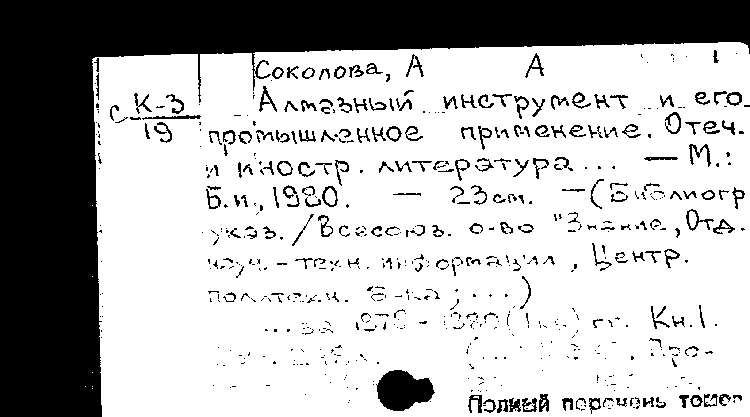 Соколова, А А
с К-3 Алмазный инструмент и его
19 промышленное применение. Отеч.
и иностр. литература... — М.:
Б.и., 1980. — 23см. — (Библиогр
указ. / Всесоюз. о-во "Знание, Отд.
науч.-техн. информации, Центр.
политехн. б-ка; ...)
...за 1978 - 1980 (1 кв) гг. Кн.1.
Про-
Полный перечень томов